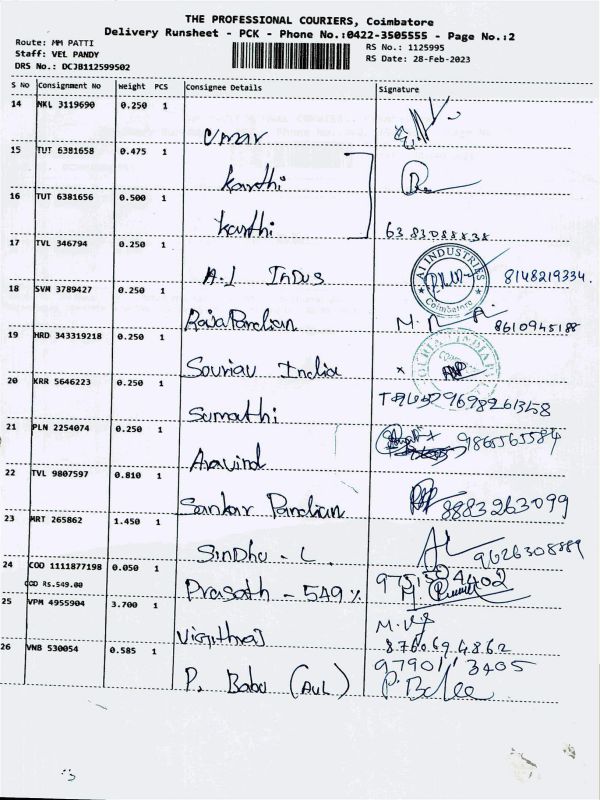 THE PROFESSIONAL COURIERS, Coimbatore
Delivery Runsheet - PCK - Phone No.:0422-3505555 - Page No.:2
Route: MM PATTI
Staff: VEL PANDY
DRS No.: DCJB112599502
RS No.: 1125995
RS Date: 28-Feb-2023
S No Consignment No Weight PCS Consignee Details Signature
14 NKL 3119690 0.250 1
Umar
15 TUT 6381658 0.475 1
Karthi
16 TUT 6381656 0.500 1
Karthi
17 TVL 346794 0.250 1
A.I INDUS
A1 INDUSTRIES Coimbatore
8148219334.
18 SVM 3789427 0.250 1
RajaPandian
8610945188
19 HRD 343319218 0.250 1
Souriau India
20 KRR 5646223 0.250 1
Sumathi
21 PLN 2254074 0.250 1
Aravind
9865565584
22 TVL 9807597 0.810 1
Sankar Pandian
8883263099
23 MRT 265862 1.450 1
SINDHU - L.
9626308889
24 COD 1111877198 0.050 1
COD RS.549.00
Prasath - 549
25 VPM 4955904 3.700 1
8760694862
26 VNB 530054 0.585 1
P. Babu (AUL)